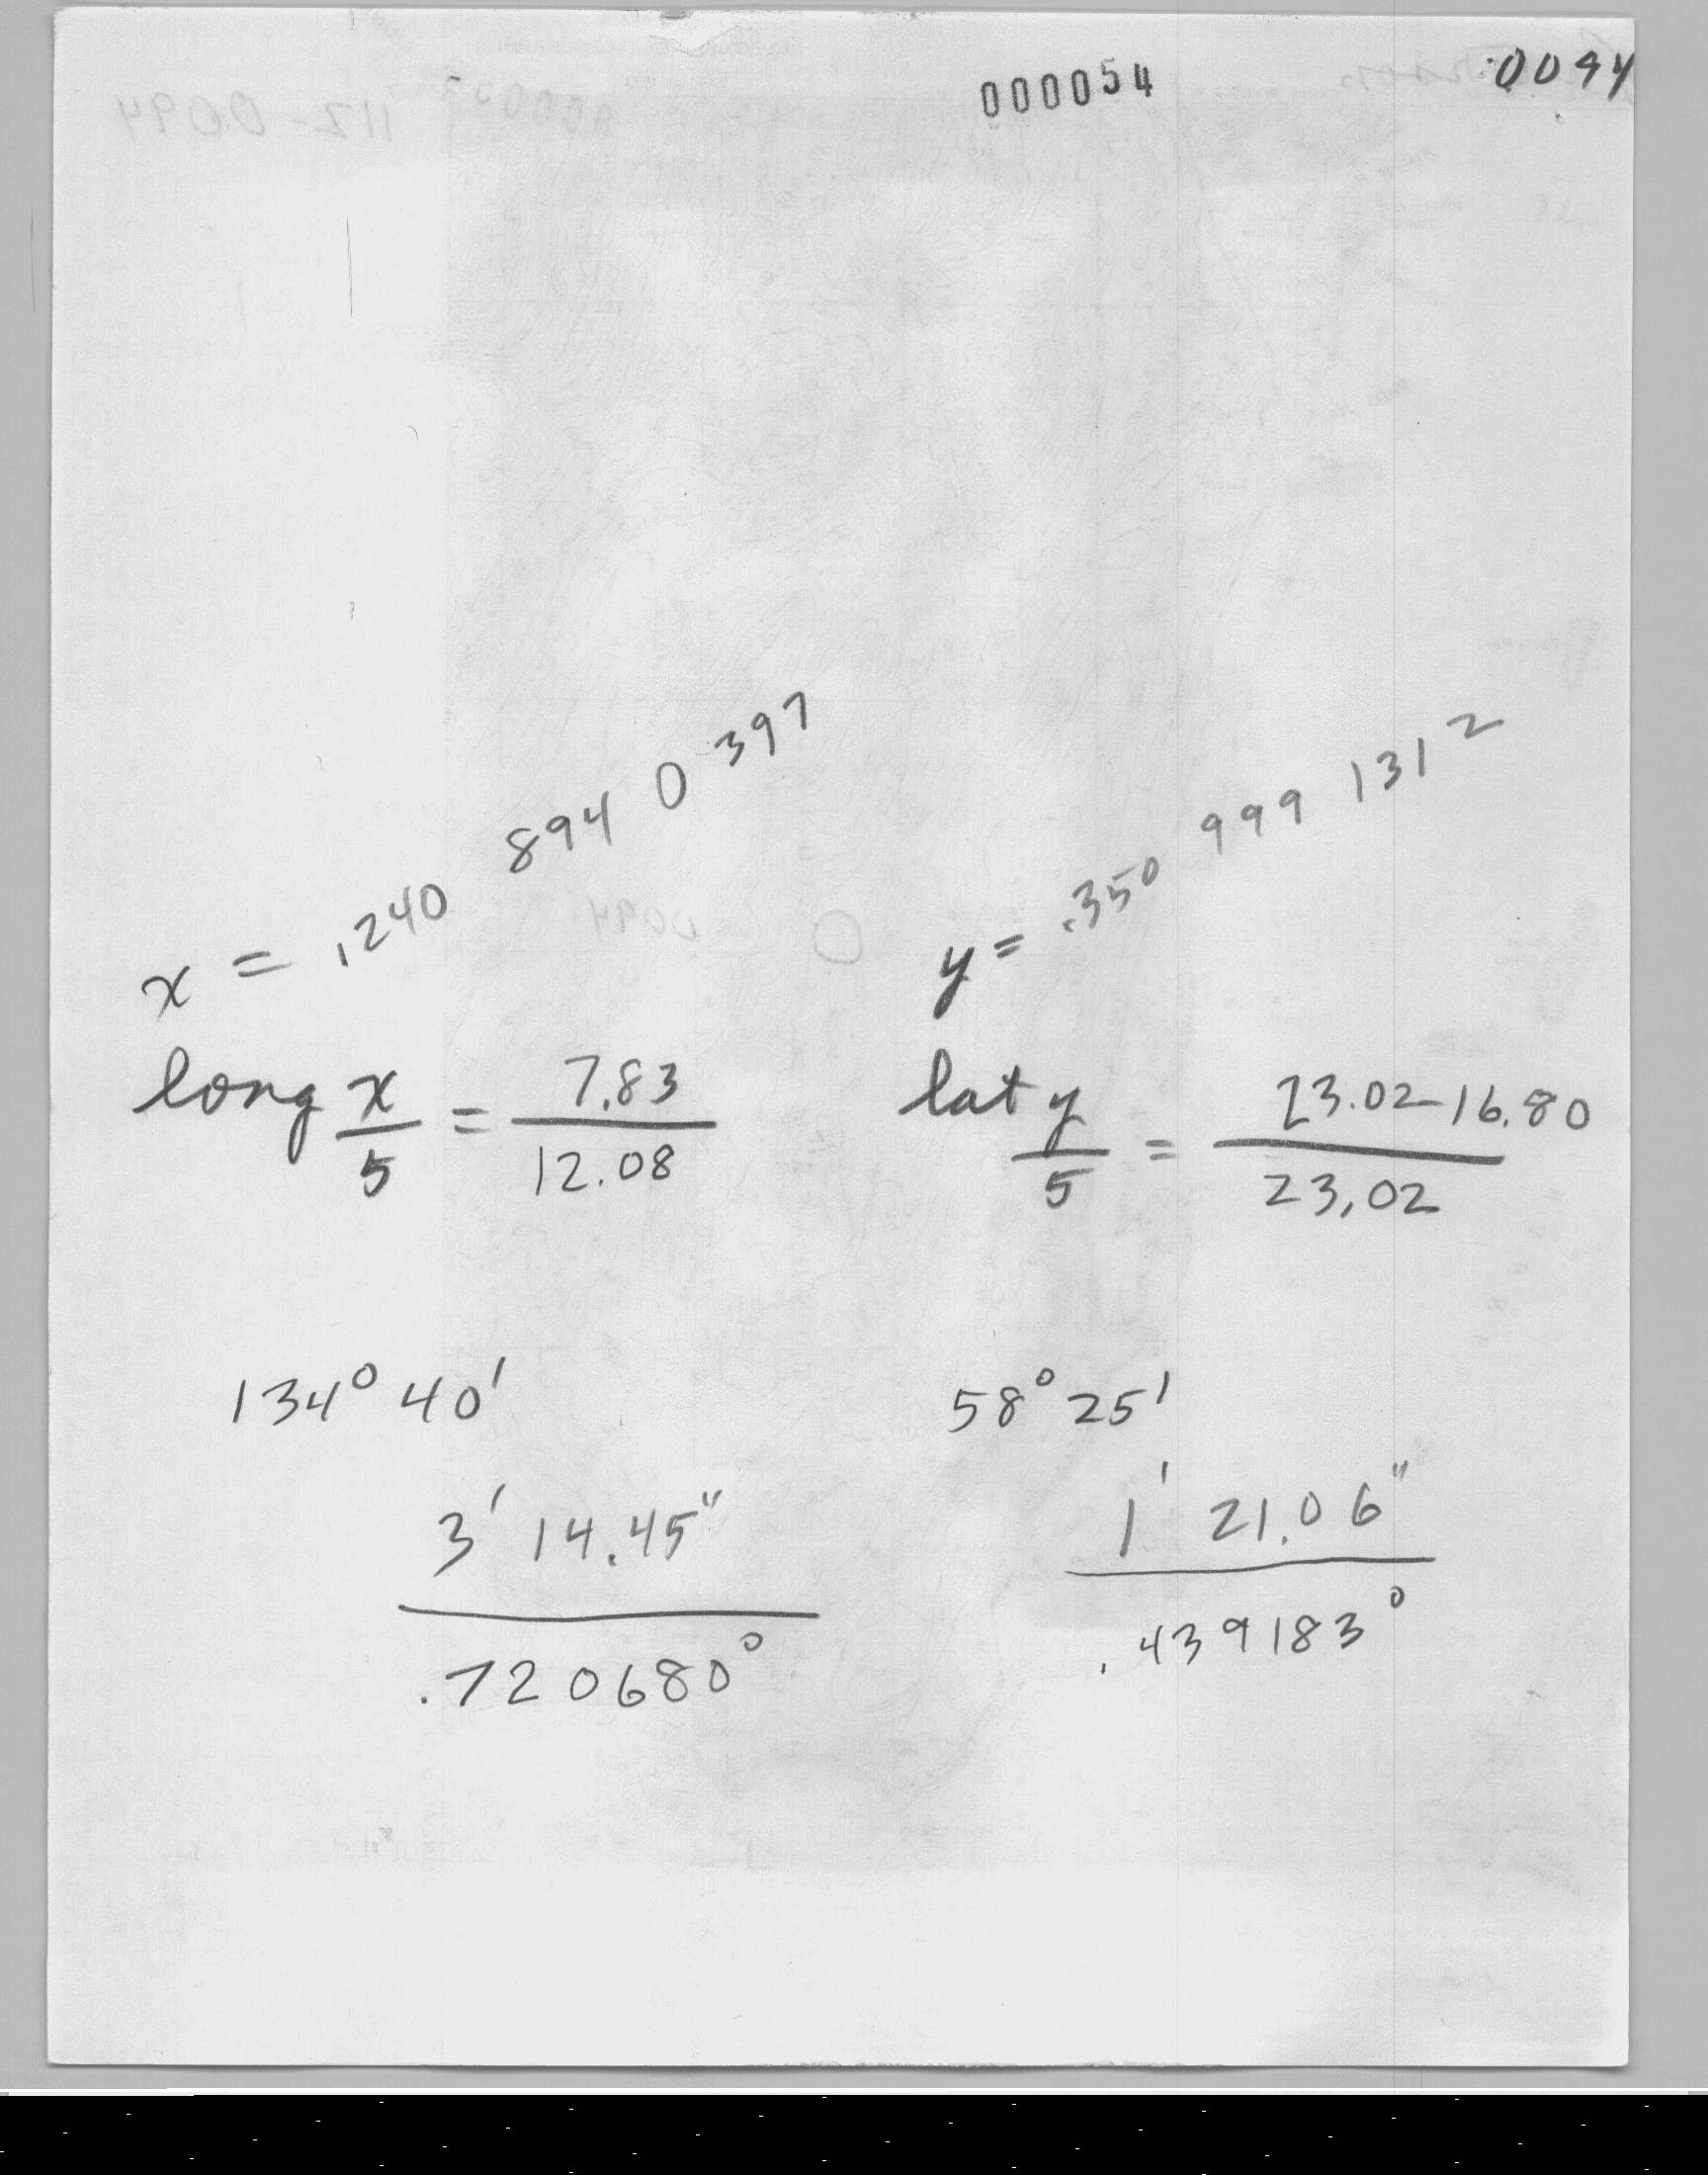 000054
0094
x = .240 894 0 397
y = .350 999 1312
long x/5 = 7.83/12.08
lat y/5 = 23.02-16.80/23.02
134° 40'
58° 25'
3' 14.45"
1' 21.06"
.720680°
.439183°